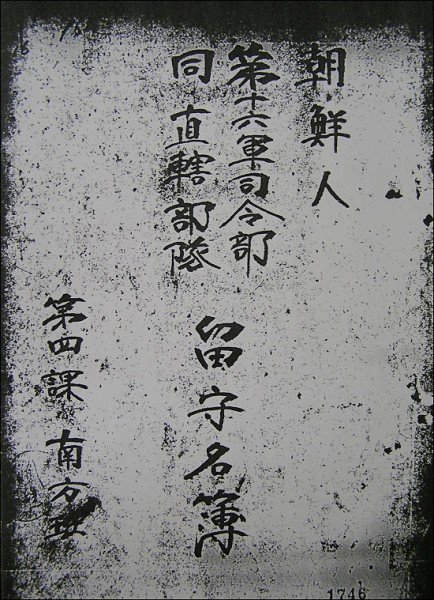 朝鮮人
第十六軍司令部
同直轄部隊
留守名簿
第四課 南方班
1746